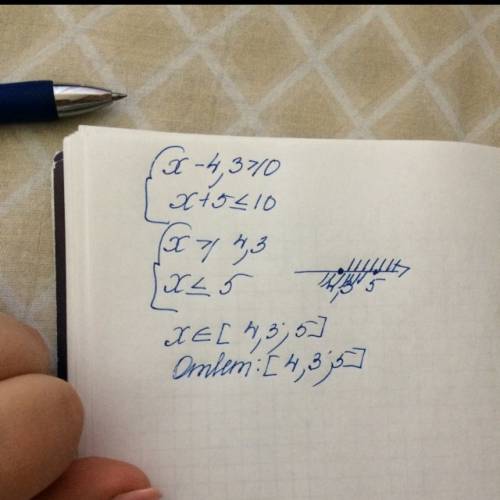 x-4,3≥0
x+5≤10
x≥4,3
x≤5
4,3 5
x∈[4,3;5]
Ответ:[4,3;5]